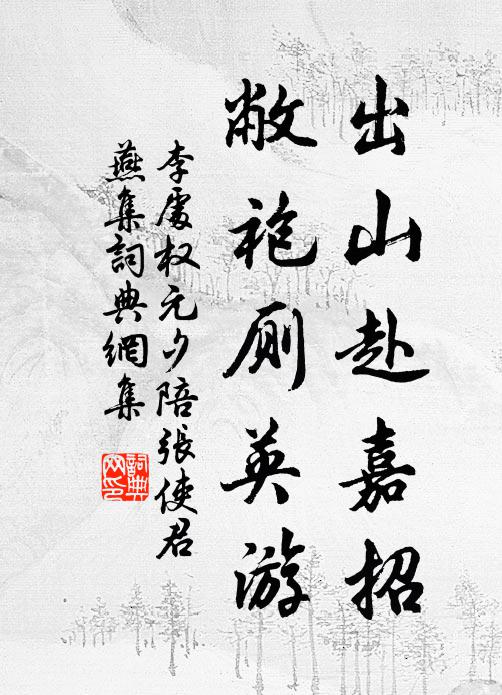 出山赴嘉招
敝袍厕英游
李處权元夕陪張使君
燕集詞典網集
詞典
网印